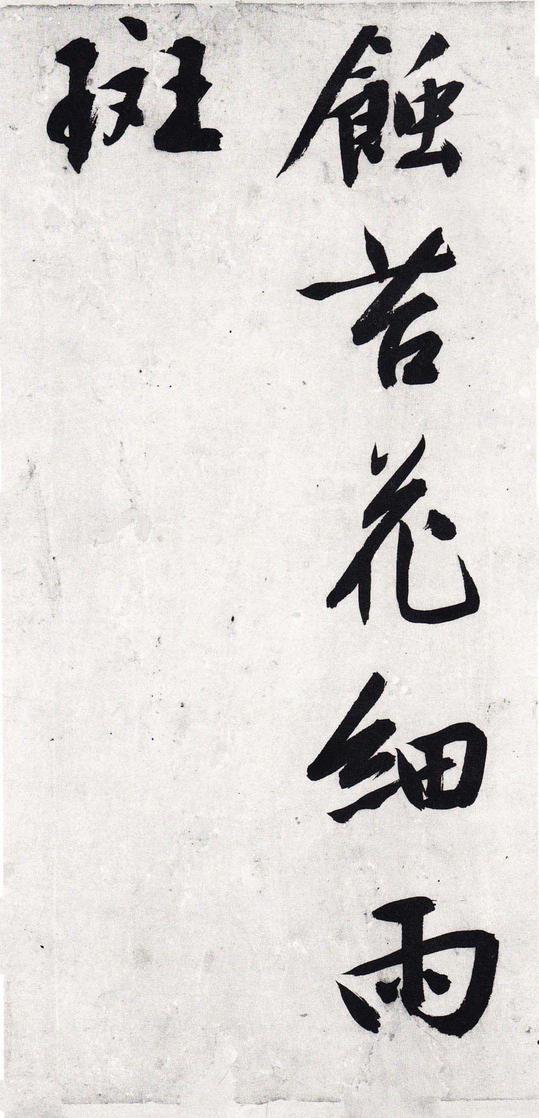 蝕苔花細雨
斑